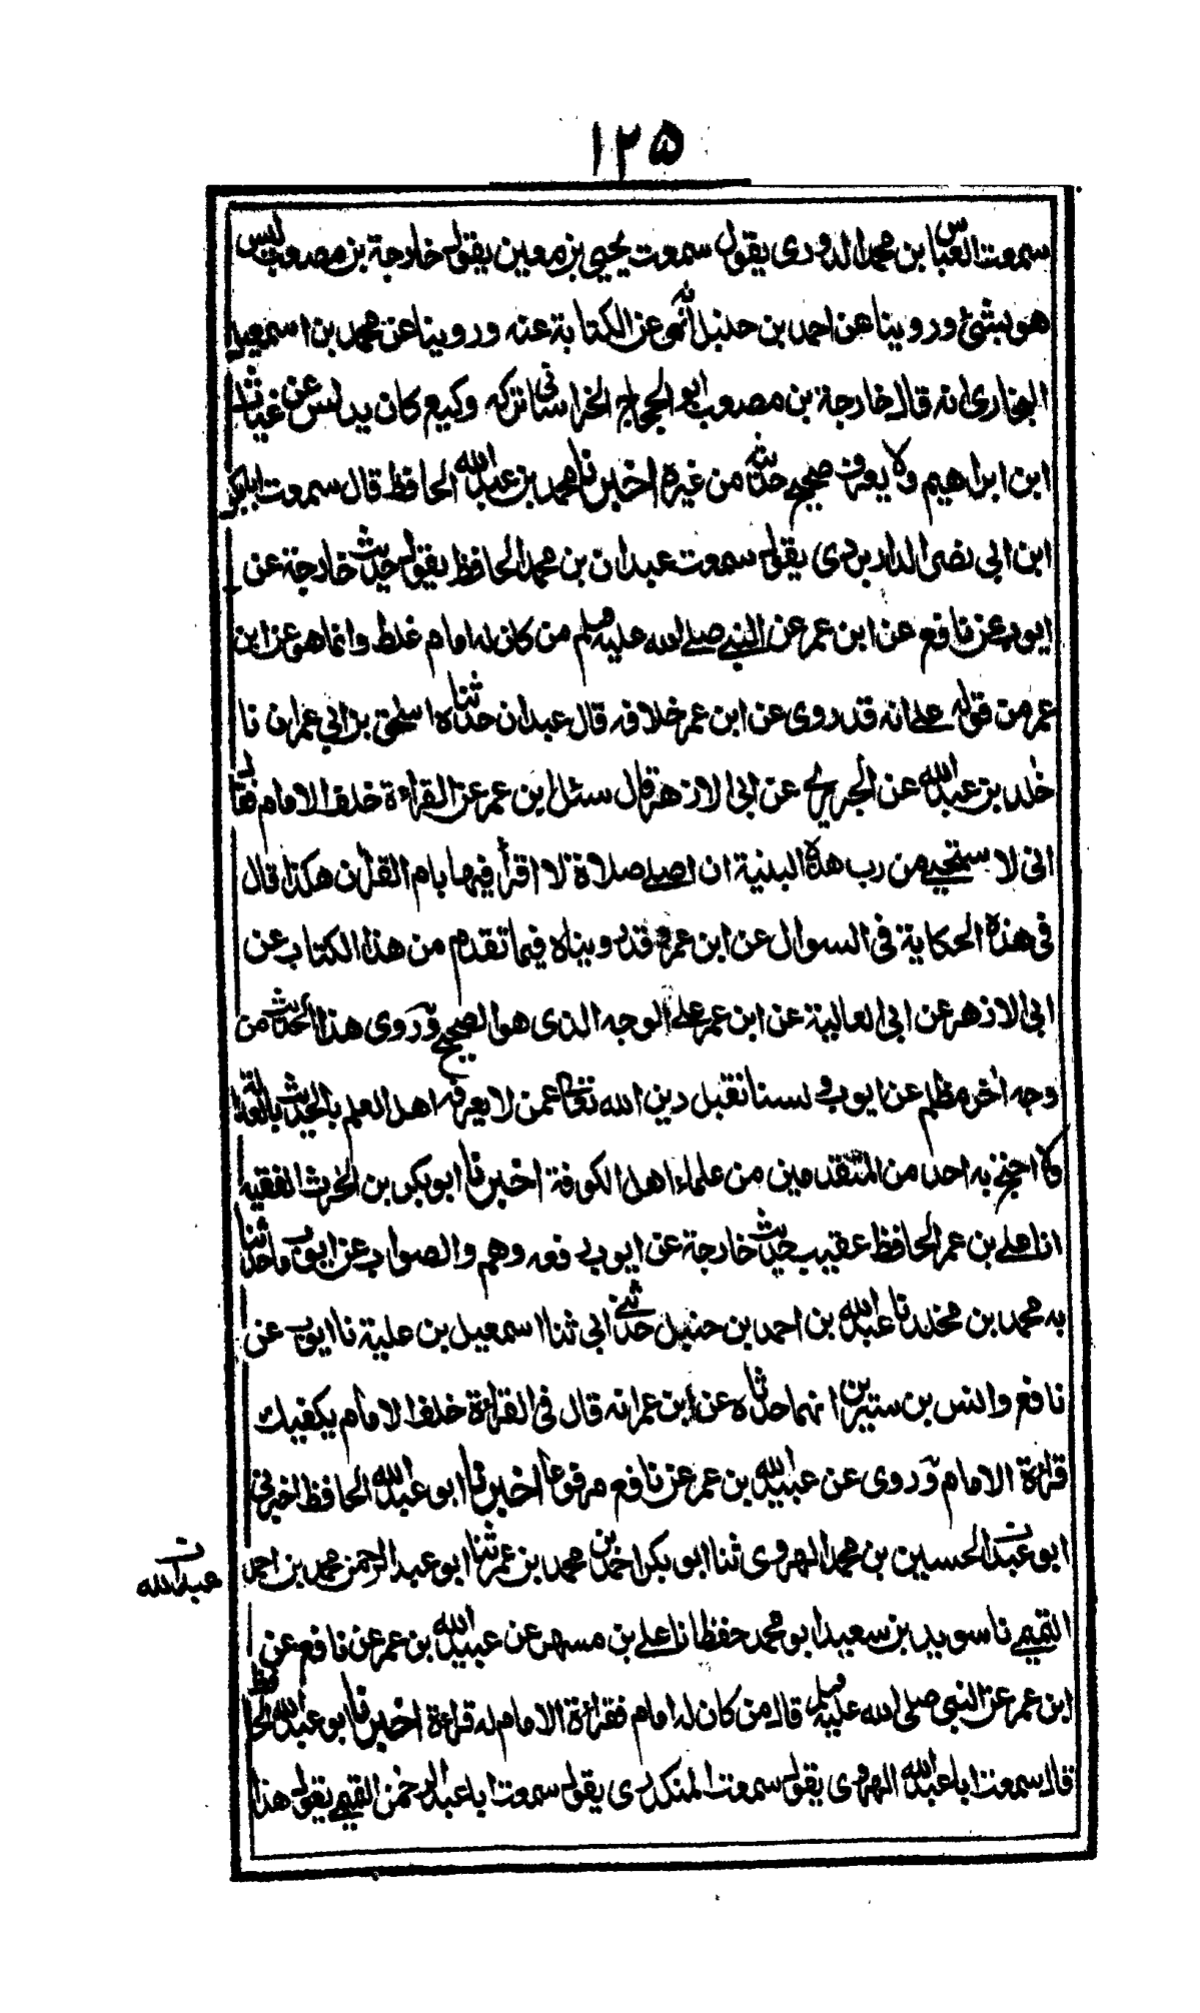 ١٢٥
سمعت العباس بن محمد الدوري يقول سمعت يحيى بن معين يقول خارجة بن مصعب ليس
هو بشئ وروينا عن احمد بن حنبل انه نهى عن الكتابة عنه وروينا عن محمد بن اسمعيل
البخاري انه قال خارجة بن مصعب ابو الحجاج الخراساني تركه وكيع كان يدلس عن غياث
ابن ابراهيم ولا يعرف صحيح حديثه من غيره اخبرنا محمد بن عبد الله الحافظ قال سمعت ابابكر
ابن ابي نصر الداربردى يقول سمعت عبدان بن محمد الحافظ يقول حديث خارجة عن
ايوب عن نافع عن ابن عمر عن النبي صلى الله عليه وسلم من كان له امام غلط وانما هو عن ابن
عمر من قوله على انه قد روى عن ابن عمر خلافه قال عبدان حدثناه اسحق بن ابي عمران نا
خلد بن عبد الله عن الجريري عن ابي الازهر قال سئل ابن عمر عن القراءة خلف الامام فقال
اني لا ستحيي من رب هذه البنية ان اصلي صلاة لا اقرأ فيها بام القرآن هكذا قال
في هذه الحكاية في السوال عن ابن عمر وقد رويناه فيما تقدم من هذا الكتاب عن
ابي الازهر عن ابي العالية عن ابن عمر على الوجه الذى هو الصحيح وروى هذا الحديث من
وجه آخر مظلم عن ايوب ولسنا نقبل دين الله تعالى عمن لا يعرفه اهل العلم بالحديث بالثقة
ولا احتج به احد من المتقدمين من علماء اهل الكوفة اخبرنا ابو بكر بن الحرث الفقيه
انا علي بن عمر الحافظ عقيب حديث خارجة عن ايوب رفعه وهم والصواب عن ايوب ما حدثنا
به محمد بن مخلد نا عبد الله بن احمد بن حنبل حدثني ابي ثنا اسمعيل بن علية نا ايوب عن
نافع وانس بن سيرين انهما حدثاه عن ابن عمر انه قال في القراءة خلف الامام يكفيك
قراءة الامام وروى عن عبيد الله بن عمر عن نافع مرفوعا اخبرنا ابو عبد الله الحافظ اخبرني
ابو عبد الحسين بن محمد الهروى ثنا ابو بكر احمد بن محمد بن عمر ثنا ابو عبد الرحمن محمد بن احمد
عبد الله
التميمي نا سويد بن سعيد ابو محمد حفظا نا علي بن مسهر عن عبيد الله بن عمر عن نافع عن
ابن عمر عن النبي صلى الله عليه وسلم قال من كان له امام فقراءة الامام له قراءة اخبرنا ابو عبد الله الحافظ
قال سمعت ابا عبد الله الهروى يقول سمعت المنكدرى يقول سمعت ابا عبد الرحمن التميمي يقول هذا